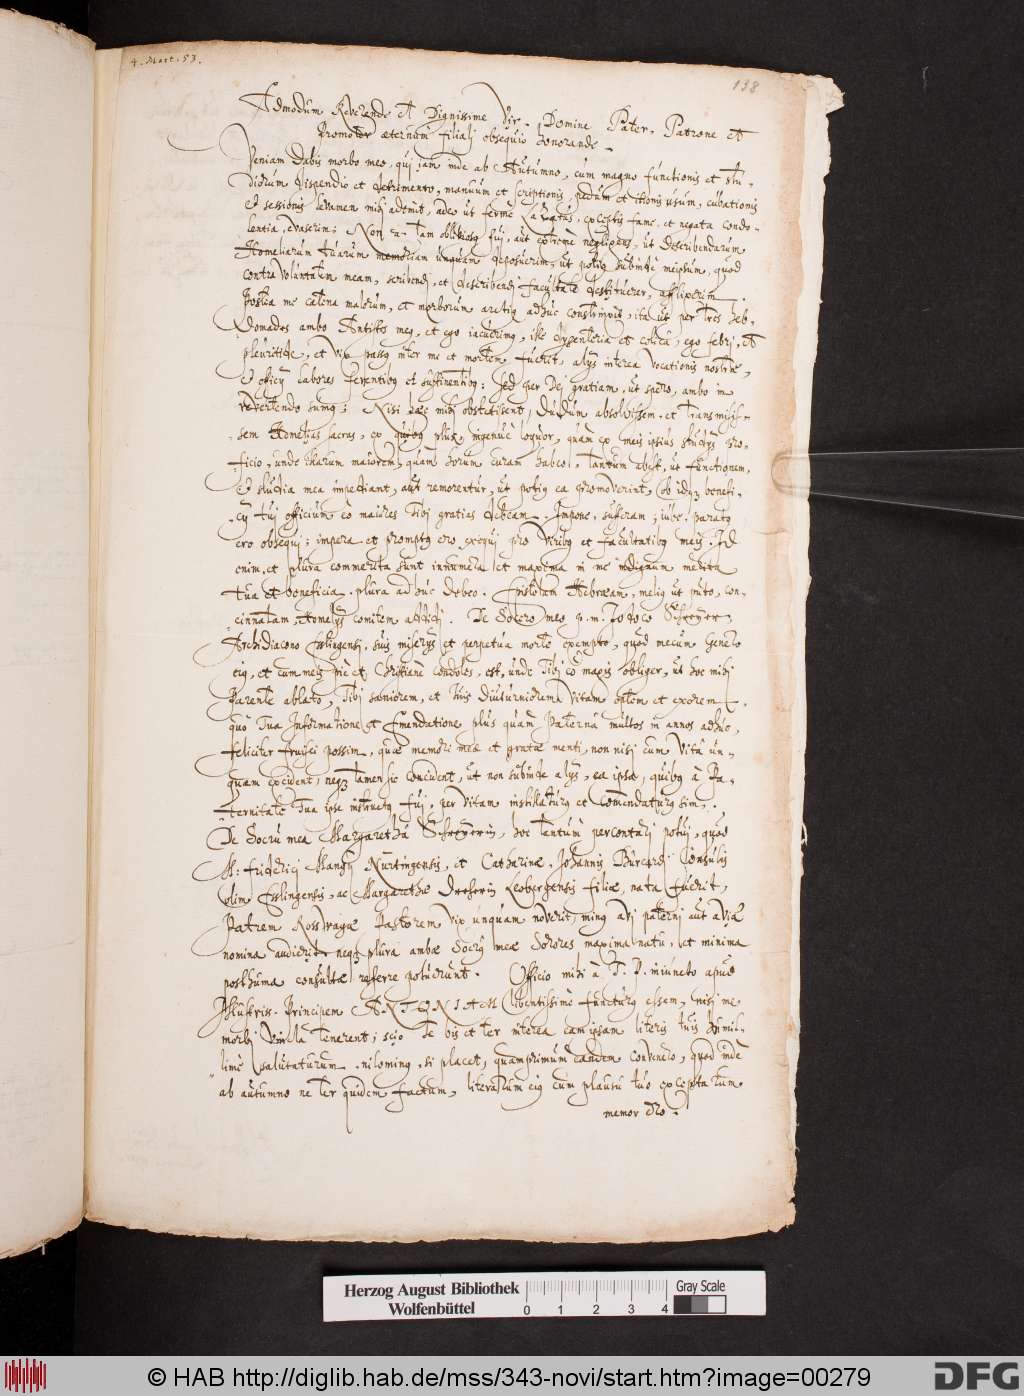 4. Mart. 53.
138
Admodum Reverende et Dignissime Vir, Domine Pater, Patrone et
Promotor æternum filiali obsequio honorande.
Veniam dabis morbo meo, qui jam inde ab Autumno, cum magno functionis et stu-
diorum dispendio et detrimento, manuum et scriptionis, pedum et itionis usum, cubationis
et sessionis levamen mihi ademit, adeo ut ferme Lazarus, exceptis fame, et negata condo-
lentia, evaserim; Non n. tam obliviosq fui, aut extremè negligens, ut describendarum
Homeliarum tuarum memoriam unquam deposuerim, ut potiq subinde meipsum, quod
contra voluntatem meam, scribendi, et describendi facultate destituerer, afflixerim.
Postea me catena malorum, et morborum arctiq adhuc constrinxit, ita ut per tres heb-
domadas ambo Antistes meq, et ego iacuerimq, iste dysenteria et colica, ego febri, et
pleuritide, et vix passq inter me et mortem fuerit, alijs interea vocationis nostræ,
et officij labores ferentibq et sustinentibq: sed per Dei gratiam, ut spero, ambo in
revertendo sumq; Nisi hæc mihi obstetissent, dudum absolvissem, et transmisis-
sem Homelias sacras, ex quibq plus, ingenuè loquor, quàm ex meis ipsius studijs pro-
ficio, unde illarum maiorem, quàm horum curam habeo. Tantum abest, ut functionem,
et studia mea impediant, aut remorentur, ut potiq ea promoverint, ob idq benefi-
cij tui officium eo maiores Tibi gratias debeam. Impone, sufferam; iube, paratq
ero obsequi; impera et promptq ero exequi pro viribq et facultatibq meis. Id
enim et plura commerita sunt innumera et maxima in me indignum merita
tua et beneficia, plura adhuc debeo. Epistolam Hebræam, meliq ut puto, con-
cinnatam, Homelijs comitem addidi. De Socero meo p. m. Jodoco
Archidiacono Esslingensi, suis miserijs et perpetua morte exempto, quod mecum Genero
eiq, et cum meis piè et Christianè condoles, est, unde Tibi eo magis obliger, ut hoc mihi
Parente ablato, Tibi saniorem, et huiq diuturniorem vitam optem et exorem,
quo Tua Informatione et Emendatione plus quam Paterna multos in annos adhuc
feliciter frui possim, quæ memori meæ et gratæ menti, non nisi cum vita un-
quam excident, neq tamen sic concident, ut non subinde alijs, ea ipsa, quibq à Pa-
ternitate Tua ipse instructq fui, per vitam instillaturq et commendaturq sim.
De Socru mea Margaretha hoc tantum percontari potui, quod
M. Friderici Mangij Nurtingensis, et Catharinæ, Johannis Burcardi Consulis
olim Esslingensis, ac Margarethæ Leobergensis filiæ, nata fuerit,
Patrem Rosswagæ Pastorem vix unquam noverit, minq avi paterni aut aviæ
nomina audierit, neq plura ambæ Socrq meæ Sorores maxima natu, et minima
posthuma consultæ referre potuerunt. Officio mihi à T. P. iniuncto apud
Illustriss. Principem ANTONIAM libentissimè functurq essem, nisi me
morbi vincula tenerent; scio Te bis et ter interea eam ipsam literis tuis humil-
limè salutaturum, nilominq, si placet, quamprimum eandem convento, quod inde
ab autumno ne ter quidem factum, literarum eiq cum plausu tuo exceptarum
memor ero.
Herzog August Bibliothek
Wolfenbüttel
0 1 2 3 4
Gray Scale
© HAB http://diglib.hab.de/mss/343-novi/start.htm?image=00279
DFG